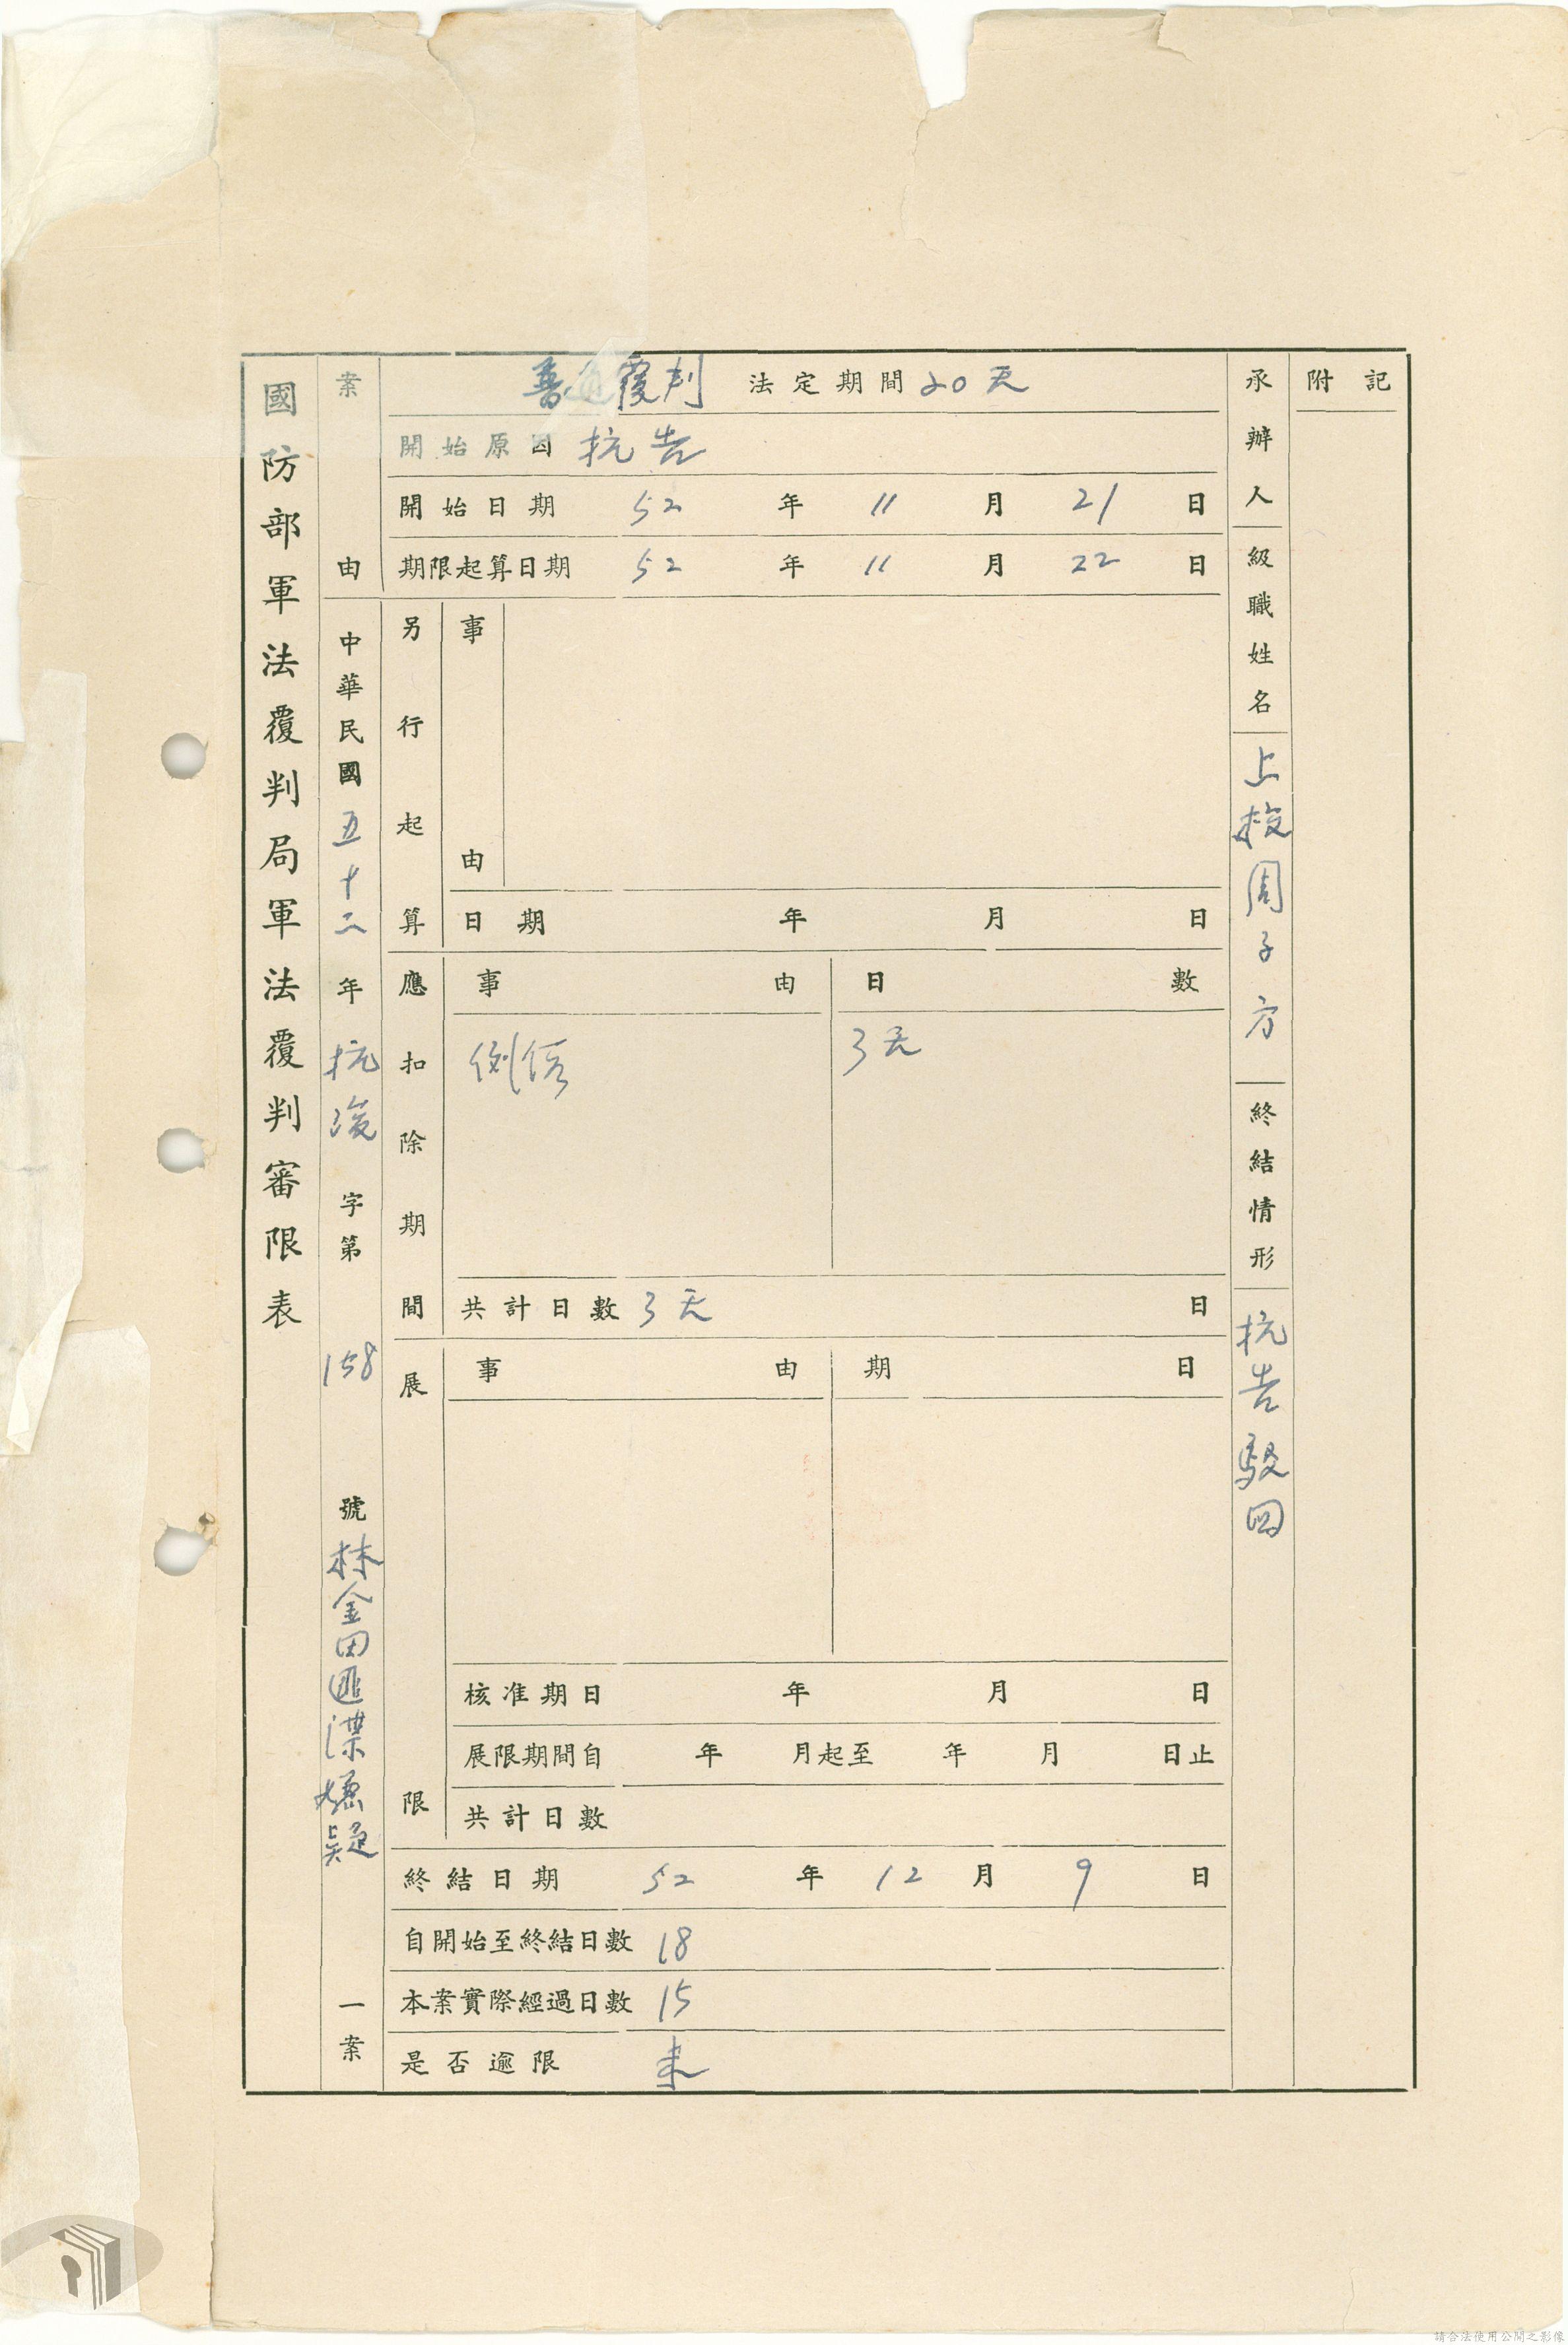 國防部軍法覆判局軍法覆判審限表
案由
中華民國五十二年抗浚字第158號林金田匪諜嫌疑一案
普通覆判 法定期間20天
開始原因 抗告
開始日期 52年11月21日
期限起算日期 52年11月22日
另行起算
事由
日期 年 月 日
應扣除期間
事由 日數
例假 3天
共計日數 3天 日
展限
事由 期日
核准期日 年 月 日
展限期間自 年 月起至 年 月 日止
共計日數
終結日期 52年12月9日
自開始至終結日數 18
本案實際經過日數 15
是否逾限 未
承辦人級職姓名
上校周子方
終結情形
抗告駁回
附記
請合法使用公開之影像